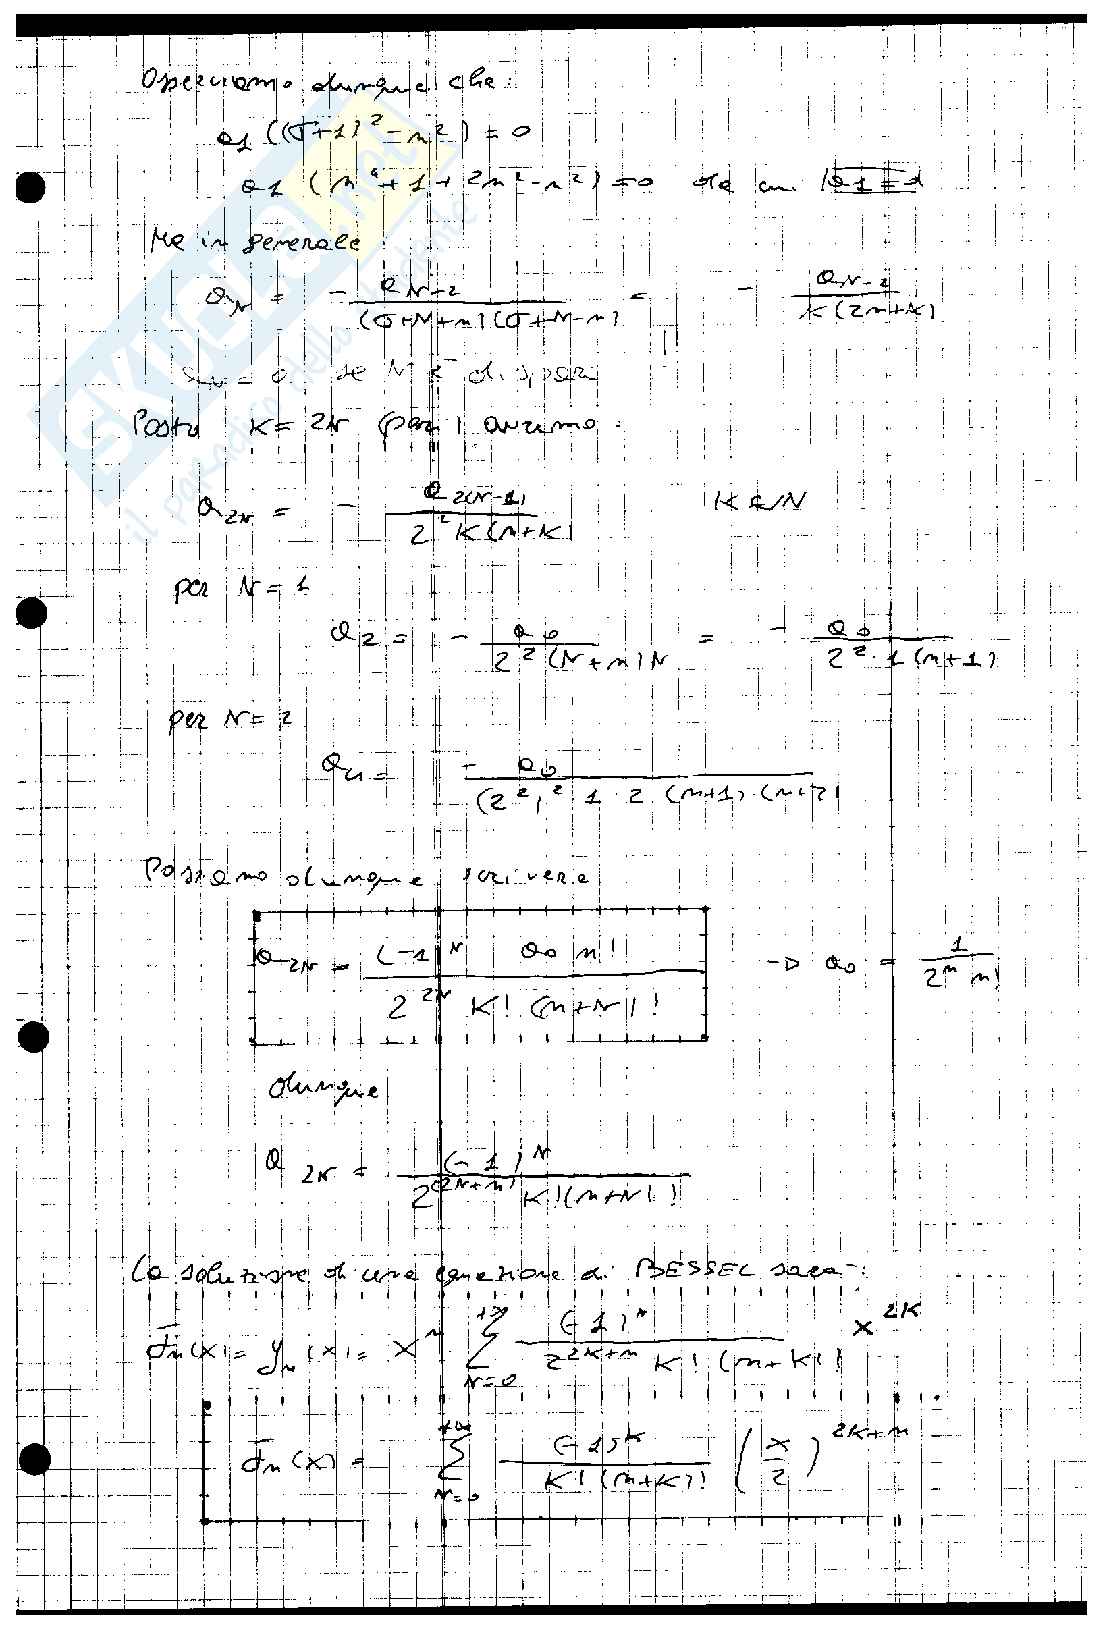 Osserviamo dunque che:
a1 ((σ+1)² - n²) = 0
a1 (n² + 1 + 2n² - n²) = 0 da cui a1 =
Ma in generale:
aN = - aN-2 / (σ+N+n)(σ+N-n) = - aN-2 / K(2n+K)
aN = 0 se N è dispari
Posto K = 2N (pari) avremo:
a2N = - a2(N-1) / 2² K(n+K) K∈N
per N = 1
a2 = - a0 / 2²(N+n)N = - a0 / 2²·1(n+1)
per N = 2
a4 = - a0 / (2²)² 1·2 (n+1)·(n+2)
Possiamo dunque scrivere
a2N = (-1)^N a0 n! / 2^2N K! (n+N)! → a0 = 1 / 2^n n!
dunque
a2N = (-1)^N / 2^(2N+n) K!(n+N)!
La soluzione di una equazione di BESSEL sarà:
Jn(x) = yn(x) = x^n Σ N=0 +∞ (-1)^N / 2^2K+n K! (n+K!) x^2K
Jn(x) = Σ N=0 +∞ (-1)^K / K! (n+K)! (x/2)^2K+n
SKUOLA.net
il paradiso dello studente